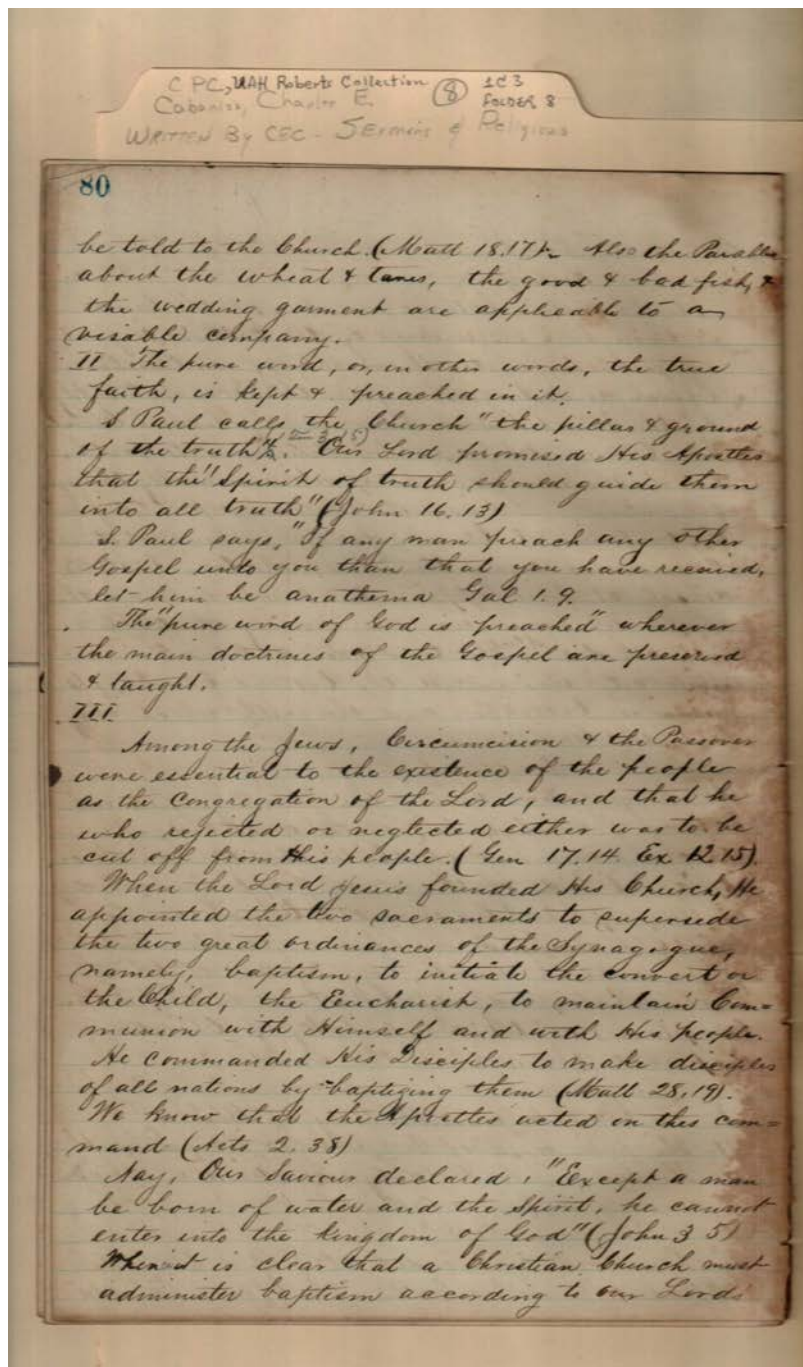 C PC, UAH Roberts Collection (8) 1C3
Cabaniss, Charles E. FOLDER 8
WRITTEN By CEC - SErmons & Religious
80
be told to the Church. (Matt 18.17). Also the Parables
about the wheat & tares, the good & bad fish, &
the wedding garment are appliable to a
visable company.
II The pure word, or, in other words, the true
faith, is kept & preached in it.
S Paul calls the Church "the pillar & ground
of the truth". Our Lord promised His Apostles
that the "Spirit of truth should guide them
into all truth" (John 16.13)
S. Paul says, "If any man preach any other
Gospel unto you than that you have received,
let him be anathema Gal 1.9.
The "pure word of God is preached" wherever
the main doctrines of the Gospel are preserved
& taught.
III
Among the Jews, Circumcision & the Passover
were essential to the existence of the people
as the Congregation of the Lord, and that he
who rejected or neglected either was to be
cut off from His people. (Gen 17.14. Ex 12.15).
When the Lord Jesus founded His Church, He
appointed the two sacraments to supersede
the two great ordinances of the Synagogue,
namely, baptism, to initiate the convert or
the Child, the Eucharist, to maintain Com=
munion with Himself and with His people.
He commanded His Disciples to make disciples
of all nations by baptizing them (Matt 28.19).
We know that the Apostles acted on this com=
mand (Acts 2.38)
Nay, Our Saviour declared, "Except a man
be born of water and the Spirit, he cannot
enter into the kingdom of God" (John 3 5)
it is clear that a Christian Church must
administer baptism according to our Lord's